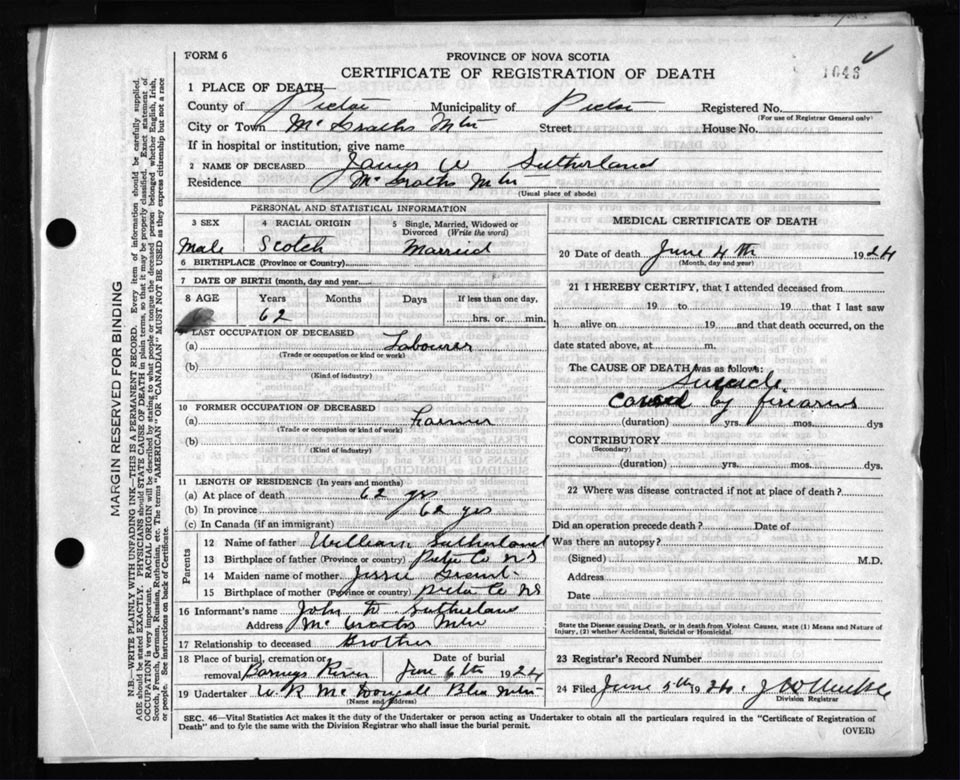 FORM 6
PROVINCE OF NOVA SCOTIA
CERTIFICATE OF REGISTRATION OF DEATH
1043
1 PLACE OF DEATH—
County of Pictou Municipality of Pictou Registered No.
(For use of Registrar General only)
City or Town McGraths Mtn Street House No.
If in hospital or institution, give name
2 NAME OF DECEASED James W Sutherland
Residence McGraths Mtn
(Usual place of abode)
PERSONAL AND STATISTICAL INFORMATION
3 SEX
Male
4 RACIAL ORIGIN
Scotch
5 Single, Married, Widowed or
Divorced (Write the word)
Married
6 BIRTHPLACE (Province or Country)
7 DATE OF BIRTH (month, day and year)
8 AGE Years Months Days If less than one day,
62 hrs. or min.
LAST OCCUPATION OF DECEASED
(a) Labourer
(Trade or occupation or kind or work)
(b)
(Kind of industry)
10 FORMER OCCUPATION OF DECEASED
(a) Farmer
(Trade or occupation or kind of work)
(b)
(Kind of industry)
11 LENGTH OF RESIDENCE (In years and months)
(a) At place of death 62 yrs
(b) In province 62 yrs
(c) In Canada (if an immigrant)
Parents
12 Name of father William Sutherland
13 Birthplace of father (Province or country) Pictu Co NS
14 Maiden name of mother Jessie Grant
15 Birthplace of mother (Province or country) Pictu Co NS
16 Informant's name John Sutherland
Address McGraths Mtn
17 Relationship to deceased Brother
18 Place of burial, cremation or Date of burial
removal Barneys River June 6th 1924
19 Undertaker W. R McDougall Blue Mtn
(Name and address)
MEDICAL CERTIFICATE OF DEATH
20 Date of death June 4th 1924
(Month, day and year)
21 I HEREBY CERTIFY, that I attended deceased from
19 to 19 that I last saw
h alive on 19 and that death occurred, on the
date stated above, at m.
The CAUSE OF DEATH was as follows:
Suicide
caused by firearms
(duration) yrs. mos. dys
CONTRIBUTORY
(Secondary)
(duration) yrs. mos. ds.
22 Where was disease contracted if not at place of death?
Did an operation precede death? Date of
Was there an autopsy?
(Signed) M.D.
Address
Date
State the Disease causing Death, or in death from Violent Causes, state (1) Means and Nature of
Injury, (2) whether Accidental, Suicidal or Homicidal.
23 Registrar's Record Number
24 Filed June 5th 1924
Division Registrar
SEC. 46—Vital Statistics Act makes it the duty of the Undertaker or person acting as Undertaker to obtain all the particulars required in the "Certificate of Registration of
Death" and to fyle the same with the Division Registrar who shall issue the burial permit.
(OVER)
MARGIN RESERVED FOR BINDING
N.B.—WRITE PLAINLY WITH UNFADING INK—THIS IS A PERMANENT RECORD. Every item of information should be carefully supplied.
AGE should be stated EXACTLY. PHYSICIANS should STATE CAUSE OF DEATH in plain terms, so that it may be properly classified. Exact statement of
OCCUPATION is very important. RACIAL ORIGIN will be described by stating to what people or tongue the deceased person belonged whether English, Irish,
Scotch, French, German, Russian, Ruthenian, etc. The terms "AMERICAN" OR "CANADIAN" MUST NOT BE USED as they express citizenship but not a race
or people. See instructions on back of Certificate.